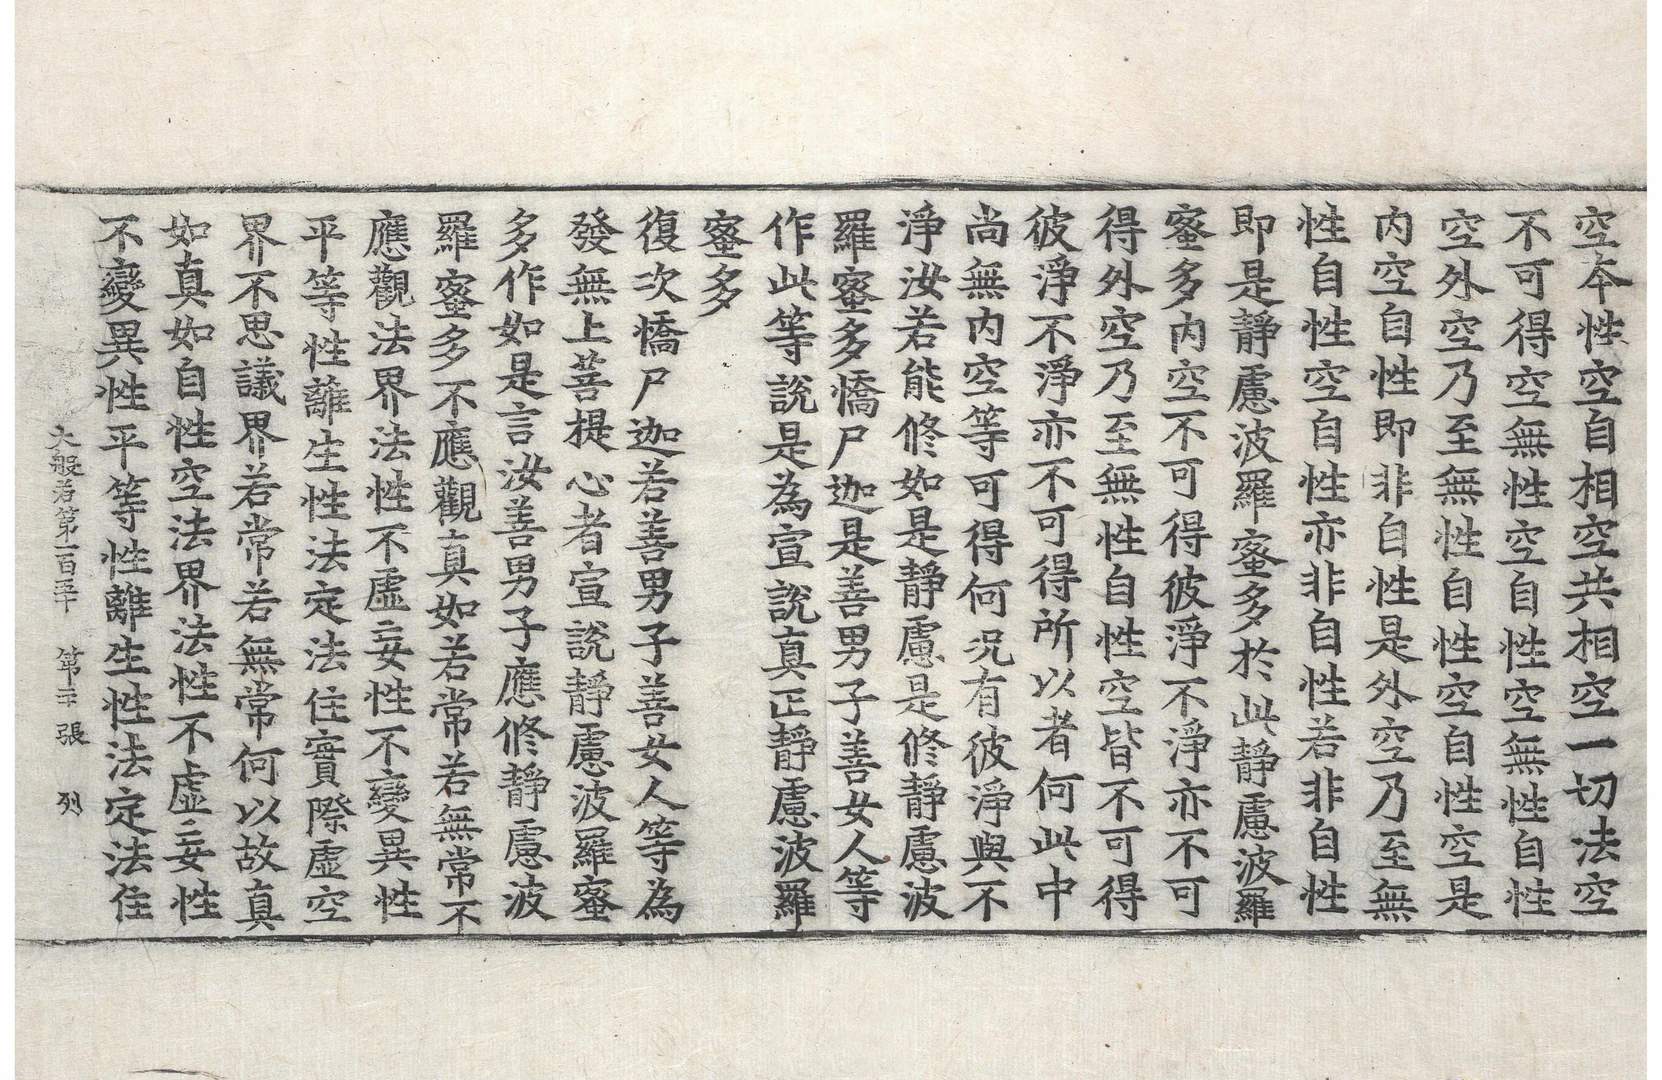 空本性空自相空共相空一切法空
不可得空無性空自性空無性自性
空外空乃至無性自性空自性空是
内空自性即非自性是外空乃至無
性自性空自性亦非自性若非自性
即是靜慮波羅蜜多於此靜慮波羅
蜜多内空不可得彼淨不淨亦不可
得外空乃至無性自性空皆不可得
彼淨不淨亦不可得所以者何此中
尚無内空等可得何況有彼淨與不
淨汝若能修如是靜慮是修靜慮波
羅蜜多憍尸迦是善男子善女人等
作此等說是為宣說真正靜慮波羅
蜜多
復次憍尸迦若善男子善女人等為
發無上菩提心者宣說靜慮波羅蜜
多作如是言汝善男子應修靜慮波
羅蜜多不應觀真如若常若無常不
應觀法界法性不虛妄性不變異性
平等性離生性法定法住實際虛空
界不思議界若常若無常何以故真
如真如自性空法界法性不虛妄性
不變異性平等性離生性法定法住
大般若第一百五十 第二十張 列